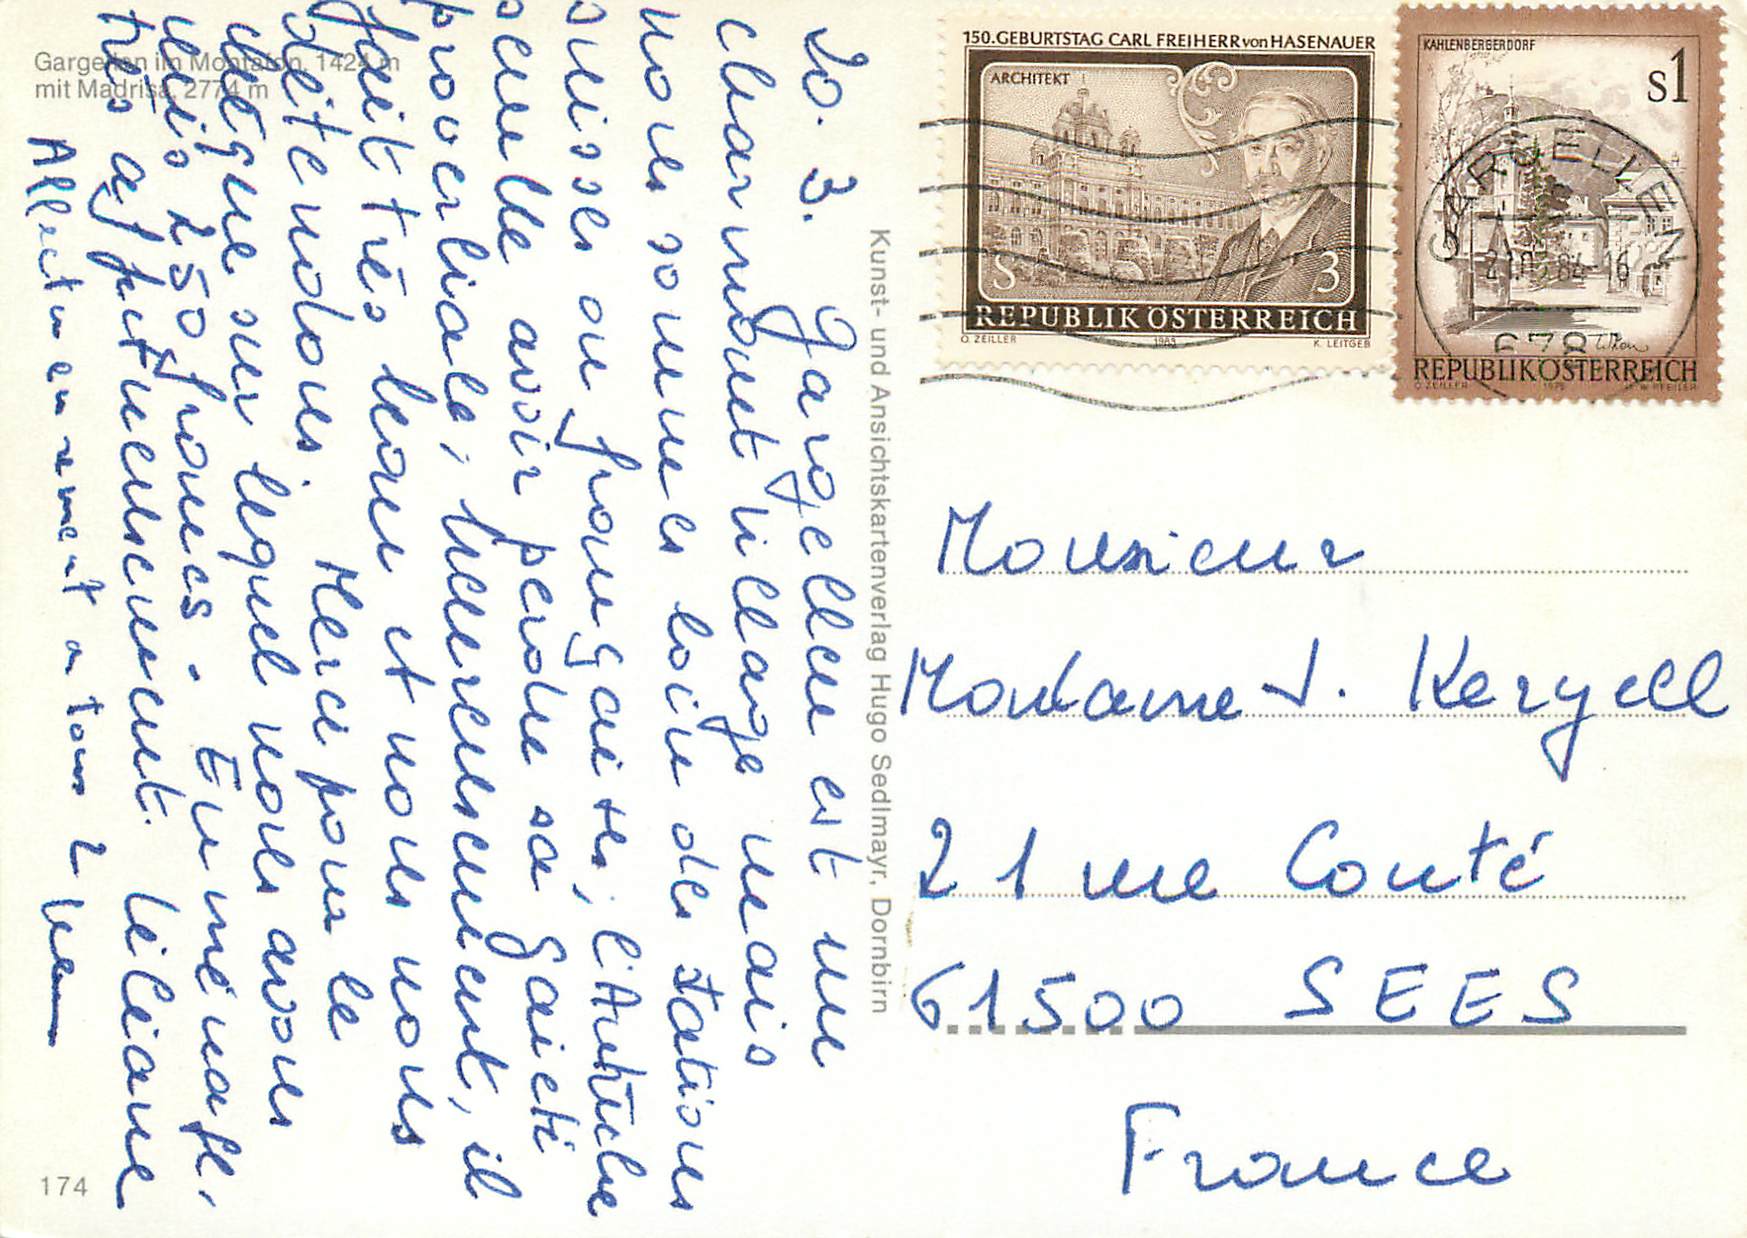 Gargellen im Montafon, 1424 m
mit Madrisa, 2774 m
20. 3. Gargellen est un
charmant village mais
nous sommes loin des stations
suisses ou françaises, l'Autriche
semble avoir perdu sa gaieté
proverbiale; heureusement, il
fait très beau et nous nous
détendons. Merci pour le
chèque sur lequel nous avons
mis 250 francs. En
très affectueusement. Liliane
Affectueusement à tous 2
174
Kunst- und Ansichtskartenverlag Hugo Sedlmayr, Dornbirn
150. GEBURTSTAG CARL FREIHERR von HASENAUER
ARCHITEKT
S 3
REPUBLIK ÖSTERREICH
O. ZEILLER 1983 K. LEITGEB
KAHLENBERGERDORF
S1
REPUBLIK ÖSTERREICH
O. ZEILLER 1975
GARGELLEN
6787
Monsieur
Madame J. Kerzell
21 rue Conté
61500 SEES
France